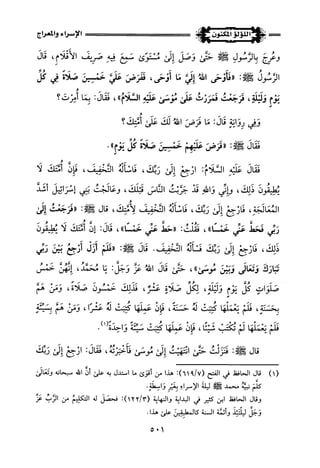 الإسراء والمعراج
اللؤلؤ المكنون
وعُرِجَ بِالرَّسُولِ ﷺ حَتَّى وَصَلَ إِلَى مُسْتَوًى سَمِعَ فِيهِ صَرِيفَ الأَقْلَامِ، قَالَ
الرَّسُولُ ﷺ: «فَأَوْحَى اللهُ إِلَيَّ مَا أَوْحَى، فَفَرَضَ عَلَيَّ خَمْسِينَ صَلَاةً فِي كُلِّ
يَوْمٍ وَلَيْلَةٍ، فَرَجَعْتُ فَمَرَرْتُ عَلَى مُوسَى عَلَيْهِ السَّلَامُ»، فَقَالَ: بِمَا أُمِرْتَ؟
وَفِي رِوَايَةٍ قَالَ: مَا فَرَضَ اللهُ لَكَ عَلَى أُمَّتِكَ؟
فَقَالَ ﷺ: «فَرَضَ عَلَيْهِمْ خَمْسِينَ صَلَاةً كُلَّ يَوْمٍ».
فَقَالَ عَلَيْهِ السَّلَامُ: ارْجِعْ إِلَى رَبِّكَ، فَاسْأَلْهُ التَّخْفِيفَ، فَإِنَّ أُمَّتَكَ لَا
يُطِيقُونَ ذَلِكَ، وَإِنِّي وَاللهِ قَدْ جَرَّبْتُ النَّاسَ قَبْلَكَ، وَعَالَجْتُ بَنِي إِسْرَائِيلَ أَشَدَّ
المُعَالَجَةِ، فَارْجِعْ إِلَى رَبِّكَ، فَاسْأَلْهُ التَّخْفِيفَ لِأُمَّتِكَ، قال ﷺ: «فَرَجَعْتُ إِلَى
رَبِّي فَحَطَّ عَنِّي خَمْسًا»، فَقُلْتُ: «حَطَّ عَنِّي خَمْسًا»، قَالَ: إِنَّ أُمَّتَكَ لَا يُطِيقُونَ
ذَلِكَ، فَارْجِعْ إِلَى رَبِّكَ فَاسْأَلْهُ التَّخْفِيفَ. قَالَ ﷺ: «فَلَمْ أَزَلْ أَرْجِعُ بَيْنَ رَبِّي
تَبَارَكَ وَتَعَالَى وَبَيْنَ مُوسَى»، حَتَّى قَالَ اللهُ عَزَّ وَجَلَّ: يَا مُحَمَّدُ، إِنَّهُنَّ خَمْسُ
صَلَوَاتٍ كُلَّ يَوْمٍ وَلَيْلَةٍ، لِكُلِّ صَلَاةٍ عَشْرٌ، فَذَلِكَ خَمْسُونَ صَلَاةً، وَمَنْ هَمَّ
بِحَسَنَةٍ، فَلَمْ يَعْمَلْهَا كُتِبَتْ لَهُ حَسَنَةً، فَإِنْ عَمِلَهَا كُتِبَتْ لَهُ عَشْرًا، وَمَنْ هَمَّ بِسَيِّئَةٍ
فَلَمْ يَعْمَلْهَا لَمْ تُكْتَبْ شَيْئًا، فَإِنْ عَمِلَهَا كُتِبَتْ سَيِّئَةً وَاحِدَةً(١).
قال ﷺ: فَنَزَلْتُ حَتَّى انْتَهَيْتُ إِلَى مُوسَى فَأَخْبَرْتُهُ، فَقَالَ: ارْجِعْ إِلَى رَبِّكَ
(١) قال الحافظ في الفتح (٦١٩/٧): هذا من أقوَى ما استدل به على أن اللهَ سبحانه وتَعَالَى
كلَّمَ نبيَّهُ محمد ﷺ ليلةَ الإسراءِ بِغَيْرِ وَاسِطَةٍ.
وقال الحافظ ابن كثير في البداية والنهاية (١٢٢/٣): فحصَلَ له التكليمُ من الرَّبِّ عَزَّ
وَجَلَّ لَيْلَتَئِذٍ وأئمَّة السنة كالمطبِقِينَ علَى هذا.
٥٠١